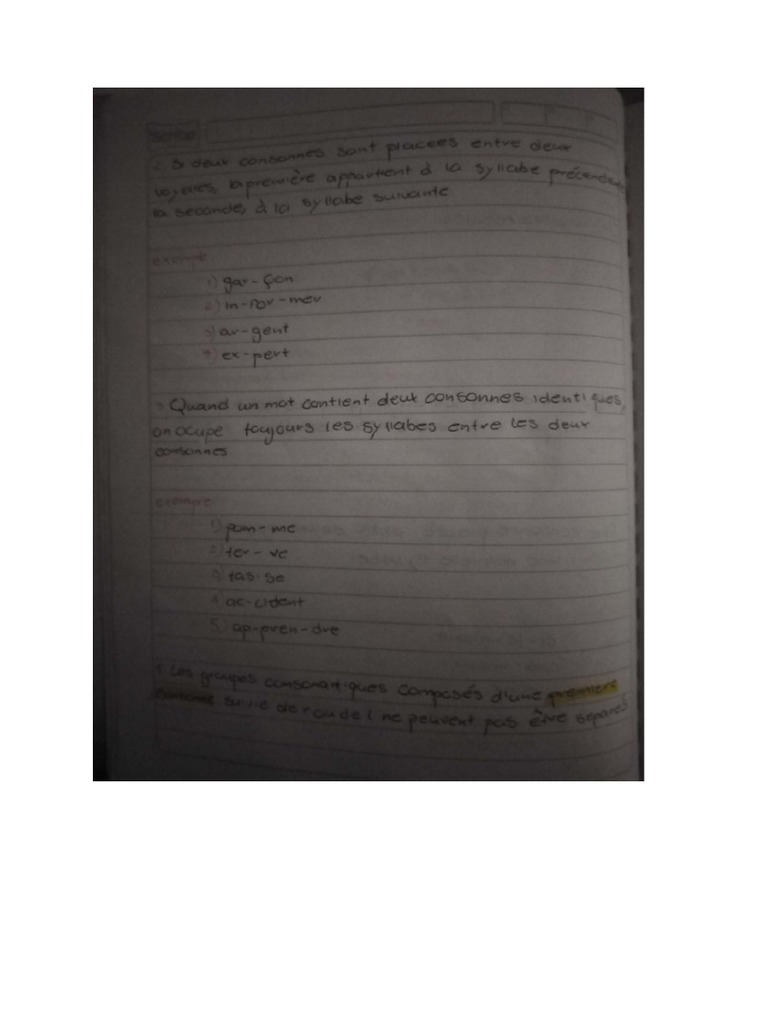 2. Si deux consonnes sont placées entre deux
voyelles, la première appartient à la syllabe précendante
la seconde, à la syllabe suivante
exemple
1) gar-çon
2) in-for-mer
3) ar-gent
4) ex-pert
3 Quand un mot contient deux consonnes identiques,
on ocupe toujours les syllabes entre les deux
consonnes
exemple
1) pom-me
2) ter-re
3) tas-se
4 ac-cident
5) ap-pren-dre
4. Les groupes consonantiques composés d'une premiere
consonne suivie de r ou de l ne peuvent pas être separés